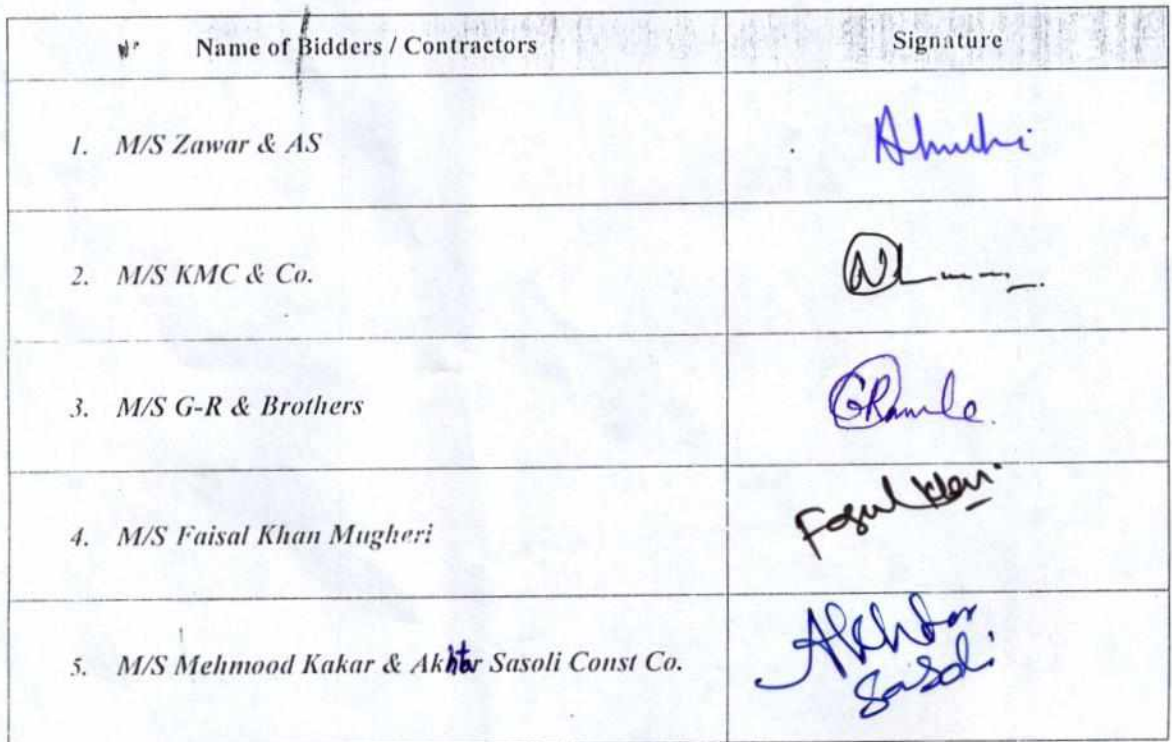 Name of Bidders / Contractors
Signature
1. M/S Zawar & AS
2. M/S KMC & Co.
3. M/S G-R & Brothers
4. M/S Faisal Khan Mugheri
5. M/S Mehmood Kakar & Akhtar Sasoli Const Co.
Akhtar
Sasoli